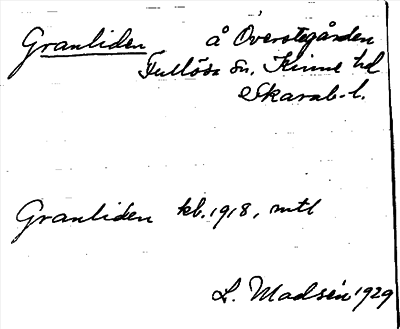 Granliden å Överstegården
Fullösa sn. Kinne hd
Skarab. l.
Granliden kb. 1918, mtl
L. Madsén 1929